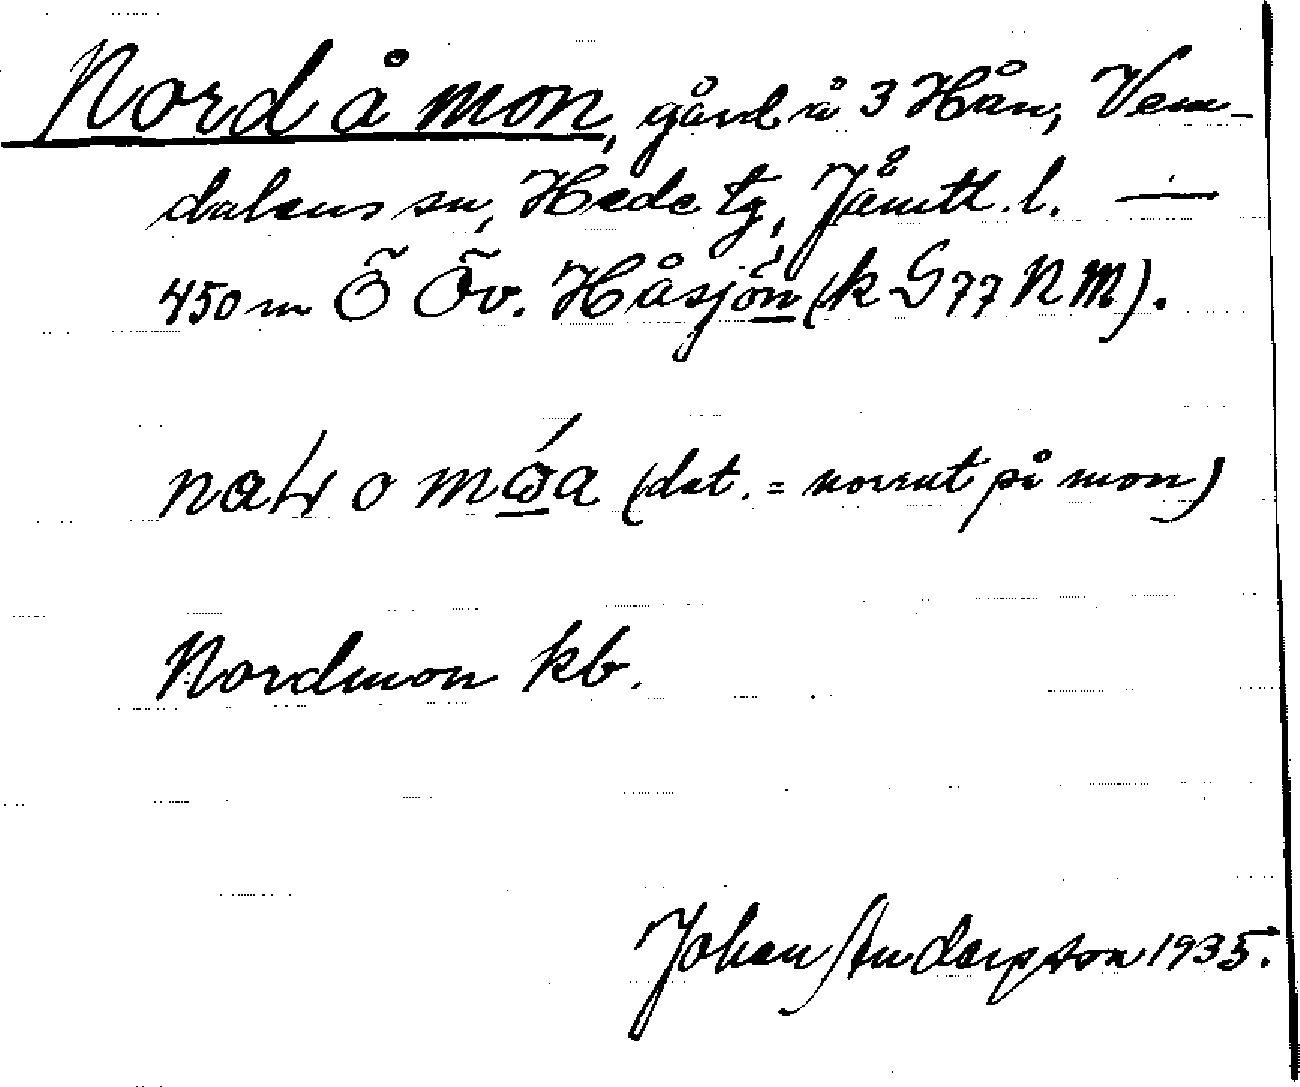 Nord å mon, gård å 3 Hån, Vem-
dalens sn, Hede tg, Jämtl. l. —
450 m Ö Öv. Håsjön (k S 77 N M).
o móa (dat. = norrut på mon)
Nordmon kb.
Johan Andersson 1935.